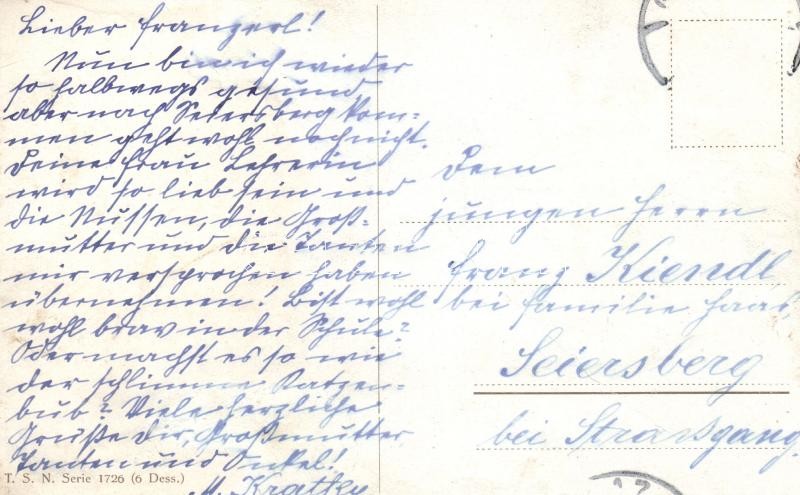 Lieber Franzerl!
Nun bin ich wieder
so halbwegs gesund
aber nach Seiersberg kom=
men geht wohl noch nicht.
Deine Frau Lehrerin
wird so lieb sein und
die Nussen, die Groß=
mutter und die Tanten
mir versprochen haben
übernehmen! Bist wohl
wohl brav in der Schule?
Oder machst es so wie
der schlimme Katzen=
bub? Viele herzliche
Grüße dir, Großmutter,
Tanten und Onkel!
M. Kratky
T. S. N. Serie 1726 (6 Dess.)
Dem
jungen Herrn
Franz Kiendl,
bei Familie Haas,
Seiersberg
bei Strassgang